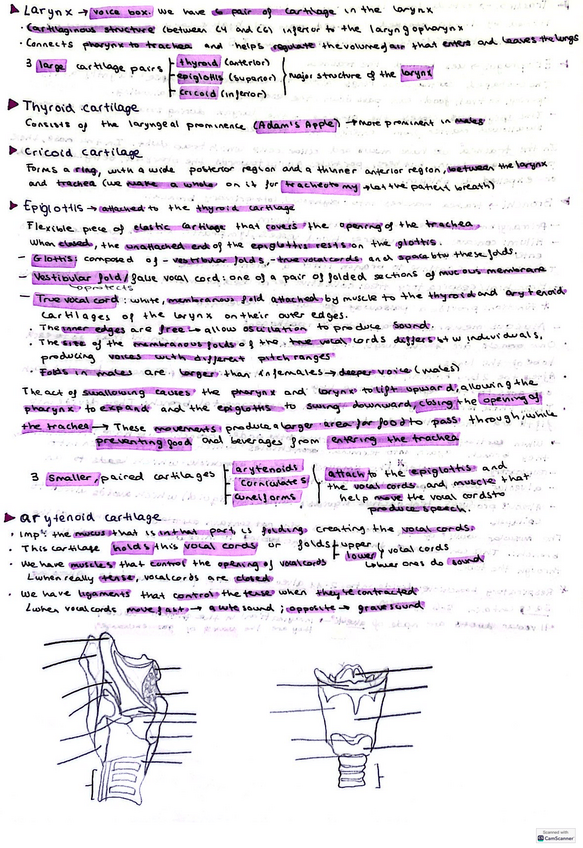 Larynx → voice box. We have 6 pair of cartilage in the larynx
• Cartilaginous structure (between C4 and C6) inferior to the laryngopharynx
• Connects pharynx to trachea and helps regulate the volume of air that enters and leaves the lungs
3 large cartilage pairs
thyroid (anterior)
epiglottis (superior)
cricoid (inferior)
major structure of the larynx
Thyroid cartilage
Consists of the laryngeal prominence (Adam's Apple) → more prominent in males
Cricoid cartilage
Forms a ring, with a wide posterior region and a thinner anterior region, between the larynx
and trachea (we make a whole on it for tracheotomy → let the patient breath)
Epiglottis → attached to the thyroid cartilage
Flexible piece of elastic cartilage that covers the opening of the trachea
When closed, the unattached end of the epiglottis rests on the glottis.
– Glottis: composed of - vestibular folds, - true vocal cords and space btw these folds.
– Vestibular fold / false vocal cord: one of a pair of folded sections of mucous membrane
↳ protects
– True vocal cord: white, membranous fold attached by muscle to the thyroid and arytenoid
cartilages of the larynx on their outer edges.
• The inner edges are free → allow oscillation to produce sound.
• The size of the membranous folds of the true vocal cords differs btw individuals,
producing voices with different pitch ranges
• Folds in males are larger than in females → deeper voice (males)
The act of swallowing causes the pharynx and larynx to lift upward, allowing the
pharynx to expand and the epiglottis to swing downward, closing the opening of
the trachea → These movements produce a larger area for food to pass through, while
preventing food and beverages from entering the trachea
3 smaller, paired cartilages
arytenoids
corniculates
cuneiforms
attach to the epiglottis and
the vocal cords and muscle that
help move the vocal cords to
produce speech.
arytenoid cartilage
• Imp: the mucus that is in that part is folding creating the vocal cords.
• This cartilage holds this vocal cords or folds upper
lower vocal cords
• We have muscles that control the opening of vocal cords
↳ lower ones do sound
↳ when really tense, vocal cords are closed
• We have ligaments that control the tense when they're contracted
↳ when vocal cords move fast → acute sound; opposite → grave sound
Scanned with
CamScanner